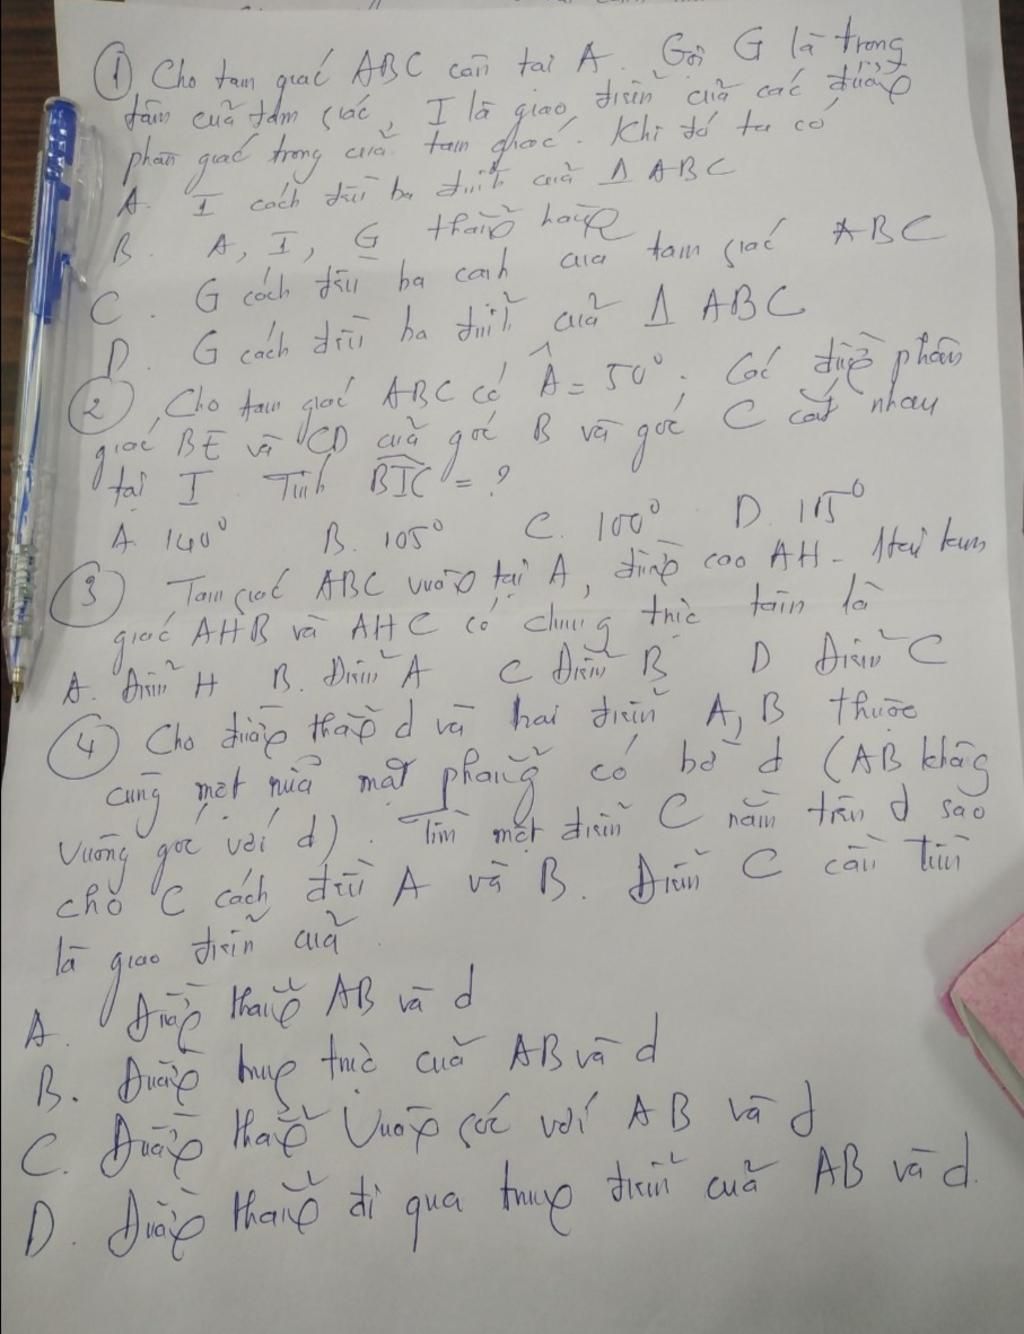 ① Cho tam giác ABC cân tại A. Gọi G là trọng
tâm của tam giác, I là giao điểm của các đường
phân giác trong của tam giác. Khi đó ta có
A. I cách đều ba đỉnh của Δ ABC
B. A, I, G thẳng hàng
C. G cách đều ba cạnh của tam giác ABC
D. G cách đều ba đỉnh của Δ ABC
② Cho tam giác ABC có Â = 50°. Các đường phân
giác BE và CD của góc B và góc C cắt nhau
tại I Tính BIC = ?
A. 140° B. 105° C. 100° D. 115°
③ Tam giác ABC vuông tại A, đường cao AH. Hai tam
giác AHB và AHC có chung trực tâm là
A. Điểm H B. Điểm A C Điểm B D Điểm C
④ Cho đường thẳng d và hai điểm A, B thuộc
cùng một nửa mặt phẳng có bờ d (AB không
vuông góc với d). Tìm một điểm C nằm trên d sao
cho C cách đều A và B. Điểm C cần tìm
là giao điểm của
A. Đường thẳng AB và d
B. Đường trung trực của AB và d
C. Đường thẳng vuông góc với AB và d
D. Đường thẳng đi qua trung điểm của AB và d.